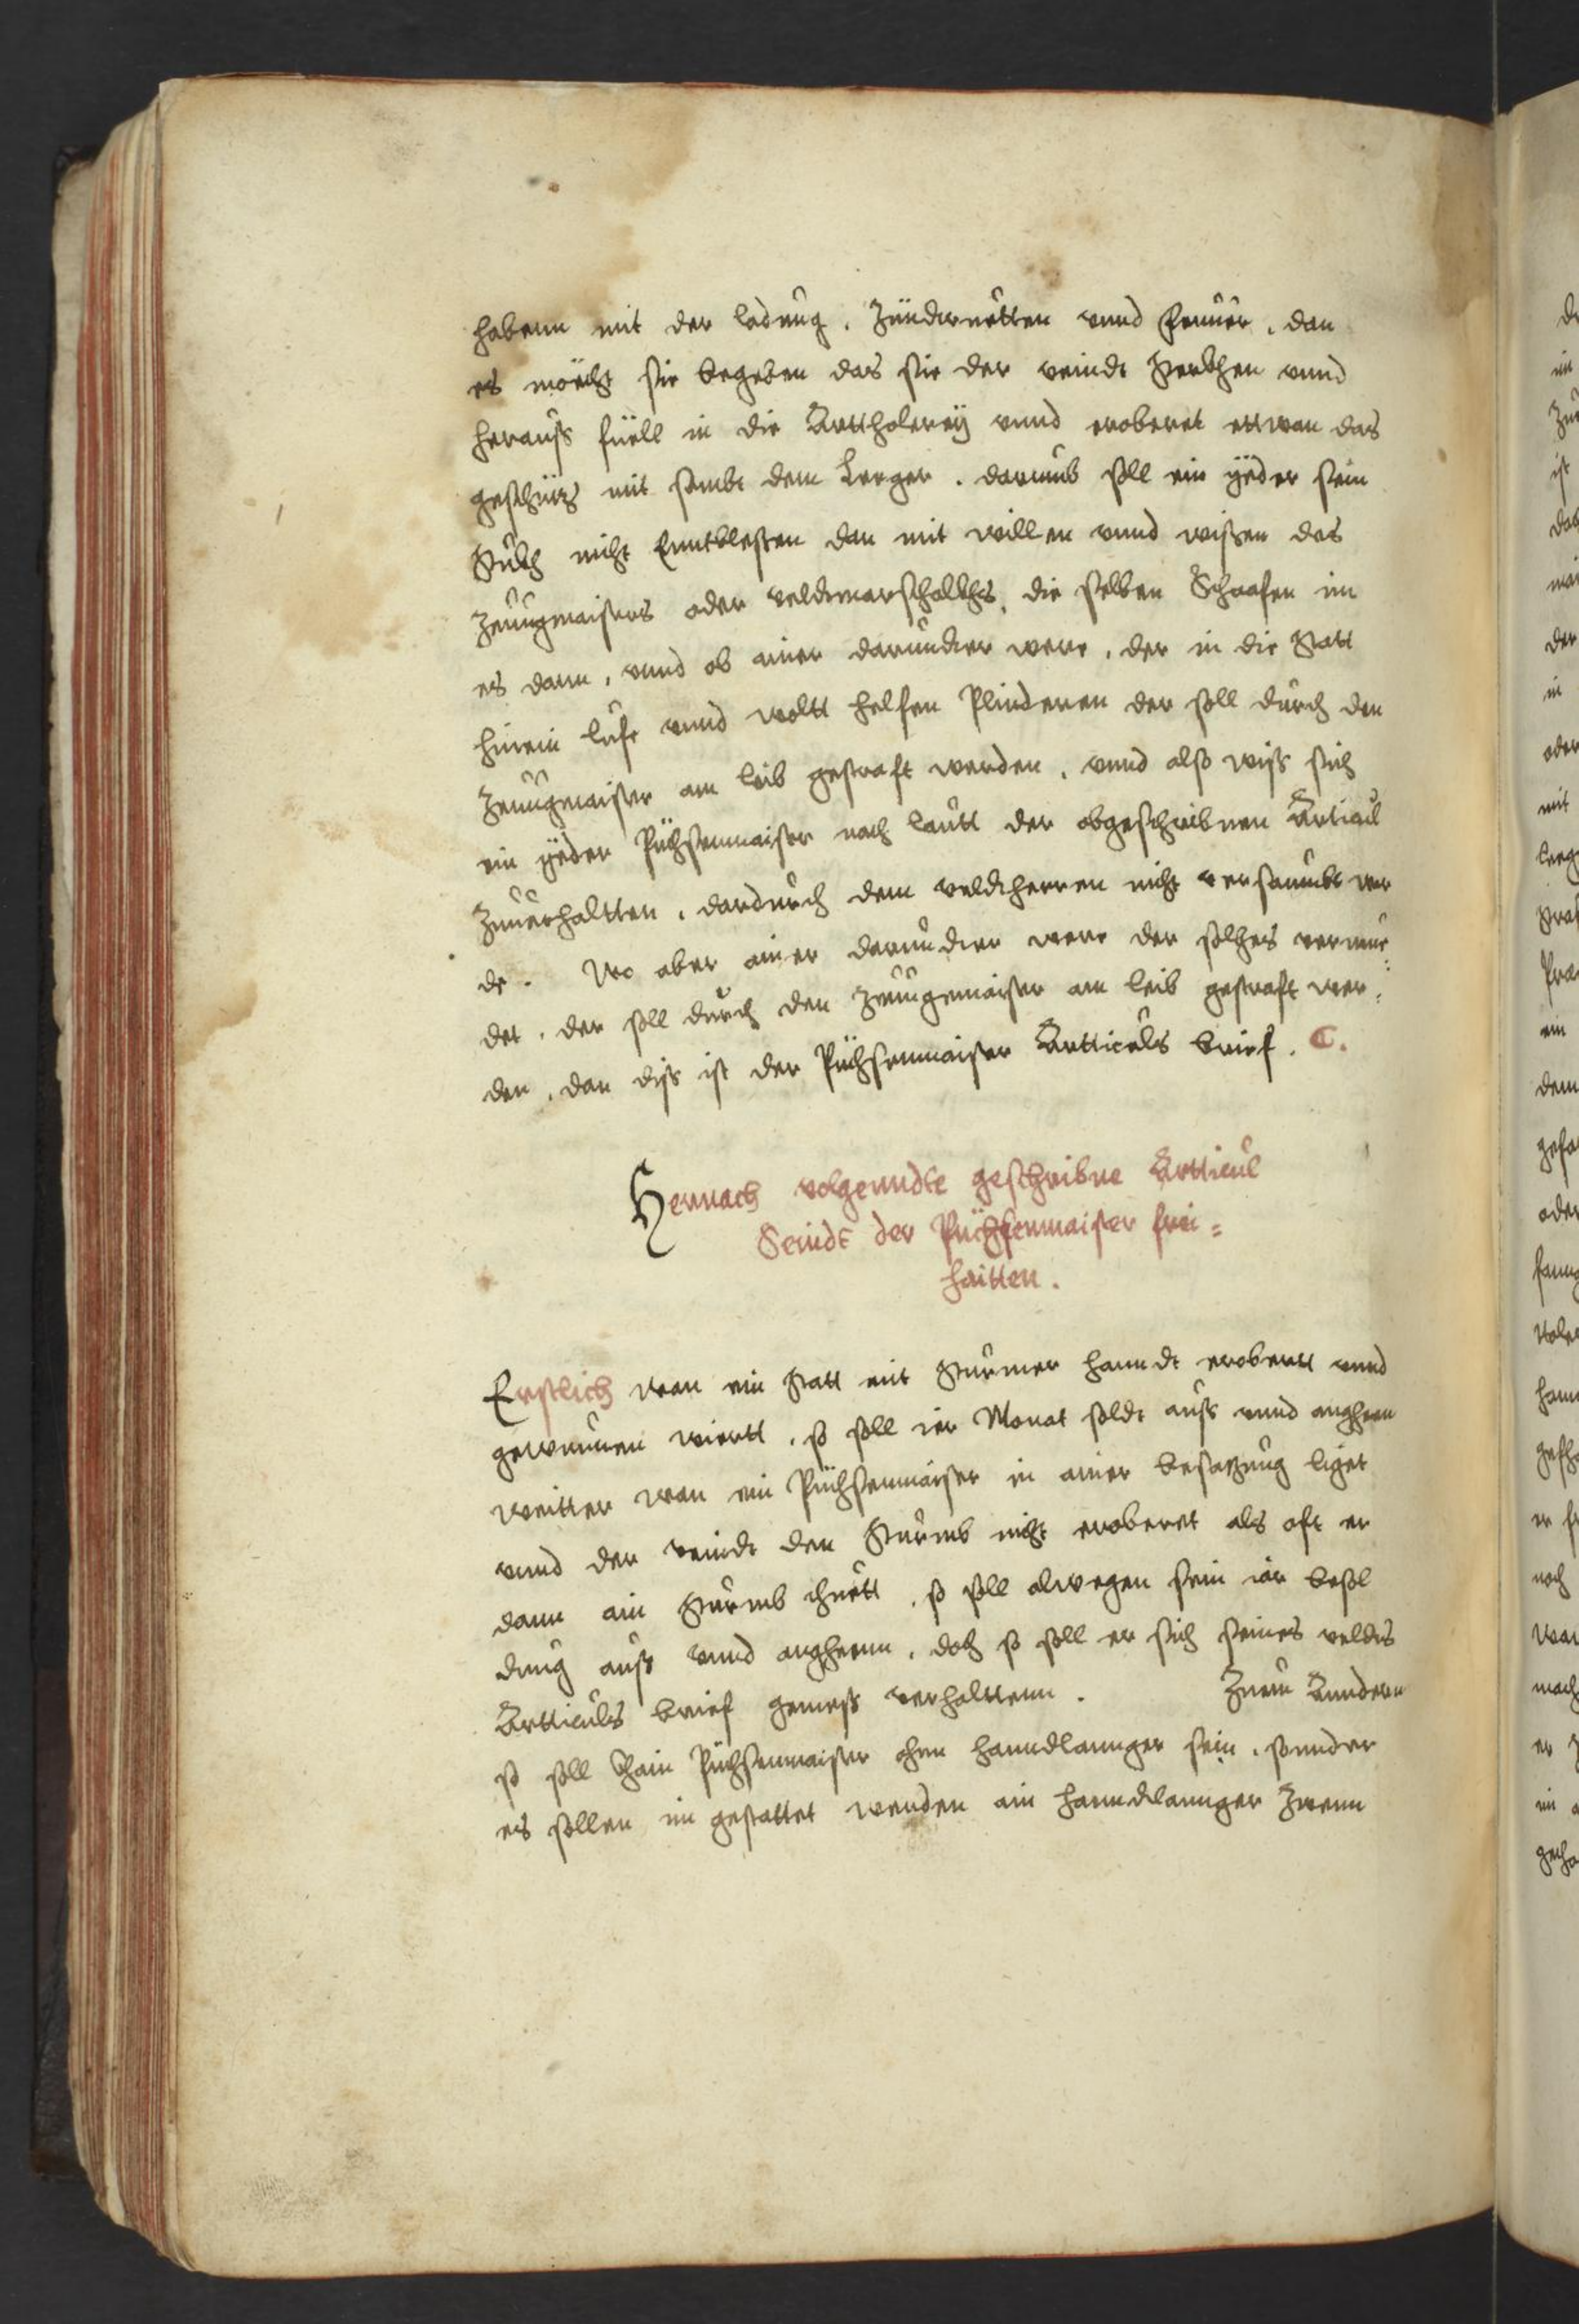 habenn mit der ladung. Zündtruetten vnnd feuuer. dan
es möcht sie begeben das sie der veindt sterkhen vnnd
herauss füell in die Arttholereÿ vnnd eroberet ettwan das
geschütz mit sambt dem Leeger. darumb soll ein ÿeder sein
Stukh nicht Enntblessen dan mit willen vnnd wissen des
Zeuugmaisters oder veldtmarschalkhs. die selben Schaafen im
es dann, vnnd ob ainer darundter were, der in die Statt
hinein lufe vnnd woltt helfen Plinderen der soll durch den
Zeuugmaister am leib gestraft werden, vnnd also wiss sich
ein ÿeder Püchsenmaister nach lautt der obgeschribnen Articul
Zuuerhaltten, dardurch dem veldtherren nicht versaumbt wer
de. Wo aber ainer darundter were der solches vermue:
det. der soll durch den Zeuugemaister am leib gestraft wer:
den, dan diss ist der Püchsenmaister Artticuls brief. C.
Hernach volgenndte geschribne Artticul
Seindt der Püchssenmaister frei=
haitten.
Erstlich wan ein Statt mit Sturmer hanndt erobertt vnnd
gewunnen wiertt, so soll ier Monat soldt auss vnnd anghenn
weitter wan ein Püchsenmaister in ainer besatzung liget
vnnd der veindt den Sturmb nicht eroberet als oft er
dann ain Sturmb thuett, so soll alwegen sein iar besol
dung auss vnnd anghenn. doch so soll er sich seines veldts
Artticuls brief gemess verhalttenn. Zuem Annderen
so soll Khain Püchsenmaister ohne hanndlannger sein, sonnder
es sollen im gestattet werden ain hanndtlannger Zwenn